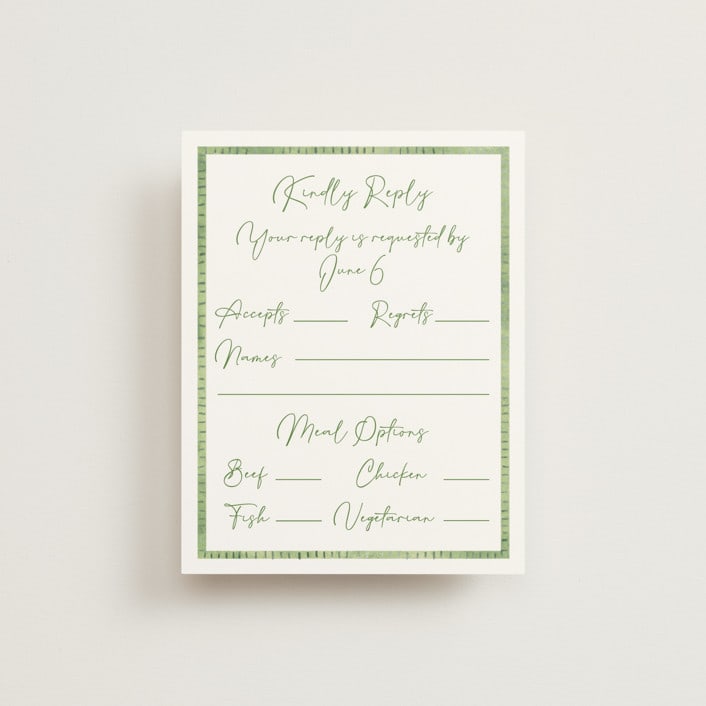 Kindly Reply
Your reply is requested by
June 6
Accepts ____ Regrets ____
Names ____
Meal Options
Beef ____ Chicken ____
Fish ____ Vegetarian ____